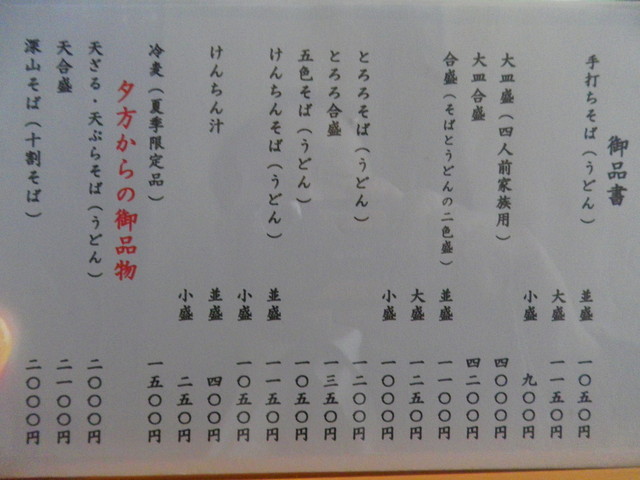 御品書
手打ちそば(うどん) 並盛 一〇五〇円
大盛 一一五〇円
小盛 九〇〇円
大皿盛(四人前家族用) 四〇〇〇円
大皿合盛 四二〇〇円
合盛(そばとうどんの二色盛) 並盛 一一〇〇円
大盛 一二五〇円
小盛 一〇〇〇円
とろろそば(うどん) 一二〇〇円
とろろ合盛 一三五〇円
五色そば(うどん) 一〇五〇円
けんちんそば(うどん) 並盛 一一五〇円
小盛 一〇五〇円
けんちん汁 並盛 四〇〇円
小盛 二五〇円
冷麦(夏季限定品) 一五〇〇円
夕方からの御品物
天ざる・天ぷらそば(うどん) 二〇〇〇円
天合盛 二一〇〇円
深山そば(十割そば) 二〇〇〇円